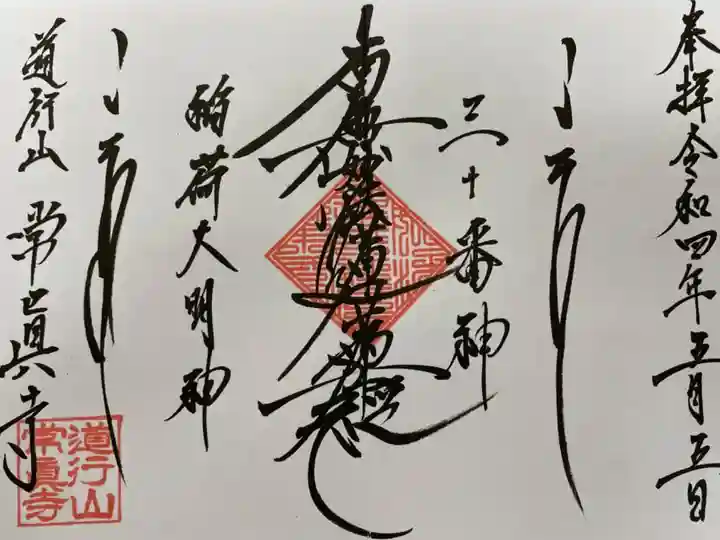 奉拝 令和四年五月五日
三十番神
南無妙法蓮華経
稲荷大明神
道行山 常眞寺
道行山
常眞寺